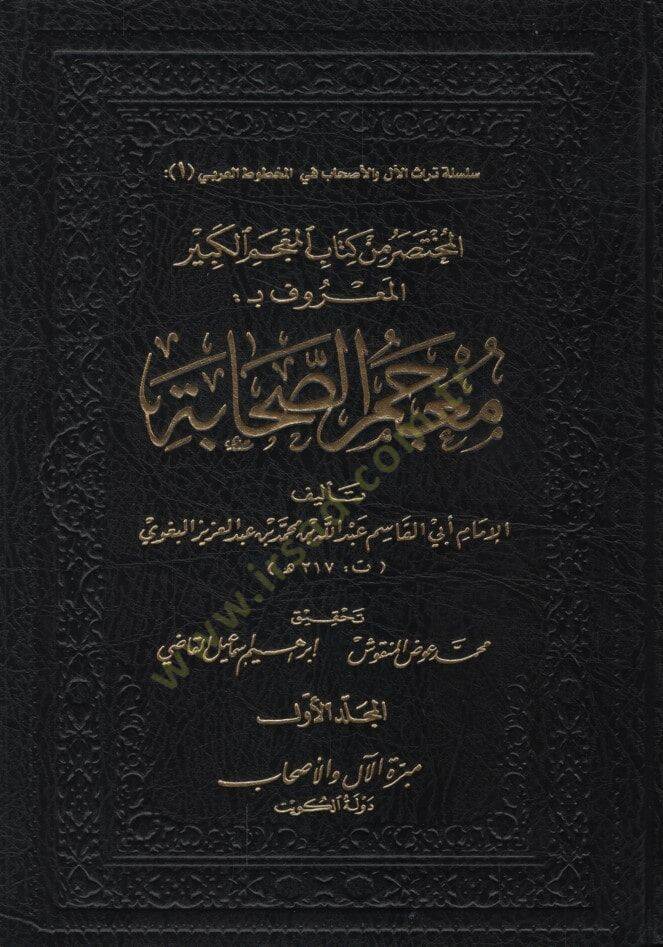 سلسلة تراث الآل والأصحاب في المخطوط العربي (١):
المختصر من كتاب المعجم الكبير
المعروف بـ:
معجم الصحابة
تأليف
الإمام أبي القاسم عبد الله بن محمد بن عبد العزيز البغوي
(ت: ٣١٧ هـ)
تحقيق
محمد عوض المنقوش إبراهيم إسماعيل القاضي
المجلد الأول
مبرة الآل والأصحاب
دولة الكويت
www.irsad.com.tr